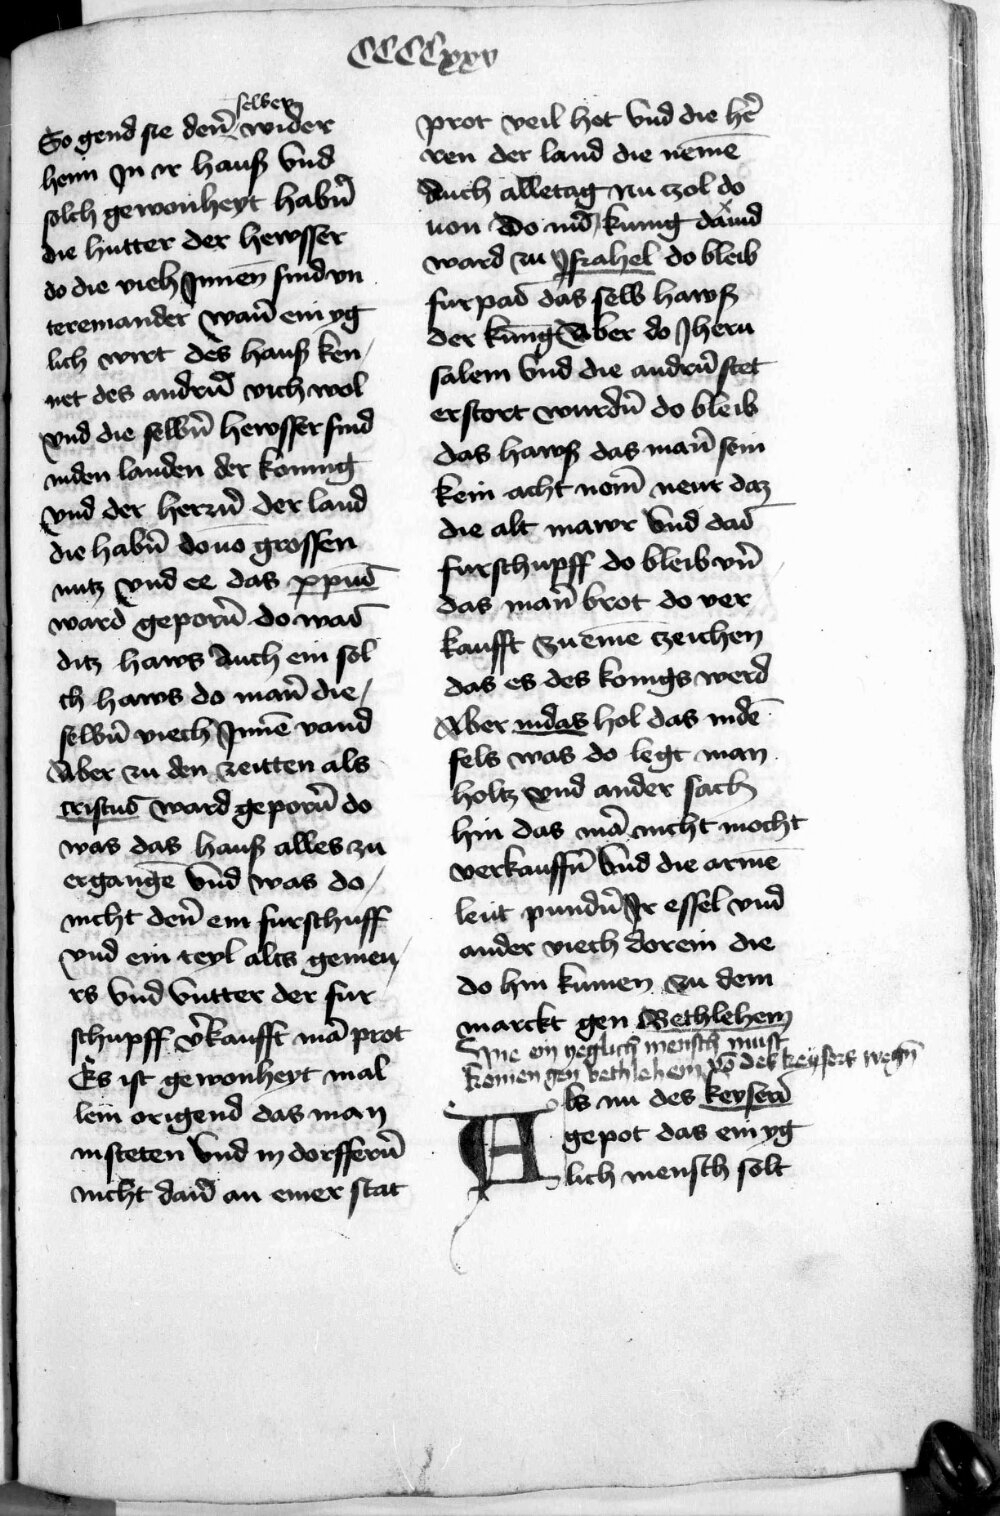 CCCCxxv
selber
So gend sie deñ wider
heim Jn ir hauß Vnd
solch gewonheyt habn̄
die hutter der hewsser
do die vieh Jnnen̄ sind vn
tereinander wan̄ ein yg
lich wirt des hauß ken /
net des andrn̄ vich wol
vnd die selbn̄ hewsser sind
inden landen der konnig
vnd der herrn̄ der land
die habn̄ douo grossen
nutz vnd ee das xp̄us
ward geporn̄ do was
ditz haws Auch ein sol
ch haws do man̄ die /
selbn̄ viech Jnnē vand
Aber zu den zeitten als
cristus ward geporn̄ do
was das hauß alles zu
ergangē Vnd was do /
nicht den̄ ein furschuff
vnd ein teyl alts gemeu /
rs Vnd Vntter der fur
schupff v̄kaufft mā prot
Es ist gewonheyt mal
lein origend das man
insteten Vnd in dorffern̄
nicht dan̄ an einer stat
prot veil het Vnd die he͂
ren der land die nemē
Auch alletag nu tzol do
uon Do nū kunig dauid
ward zu Jsrahel do bleib
furpas das selb hawß
der kunig Aber do Jheru
salem Vnd die andrn̄ stet
erstort wurdn̄ do bleib
das hawß das man̄ sein
kein acht nom̄ neur daz
die alt mawr Vnd das
furschupff do bleib vn̄
das man̄ brot do ver
kaufft zu eine tzeichen
das es des konigs werd
Aber indas hol das indē
fels was do legt man
holtz vnd ander sach
hin das mā nicht mocht
verkauffn̄ Vnd die armē
leut pundn̄ Jr essel vnd
ander viech dorein die
do hin kumen zu dem
marckt gen Bethlehem
Wie ein yeglich mensch must
komen gen bethlehem vō des keysers wegn̄
Als nu des keysers
gepot das ein yg
lich mensch solt